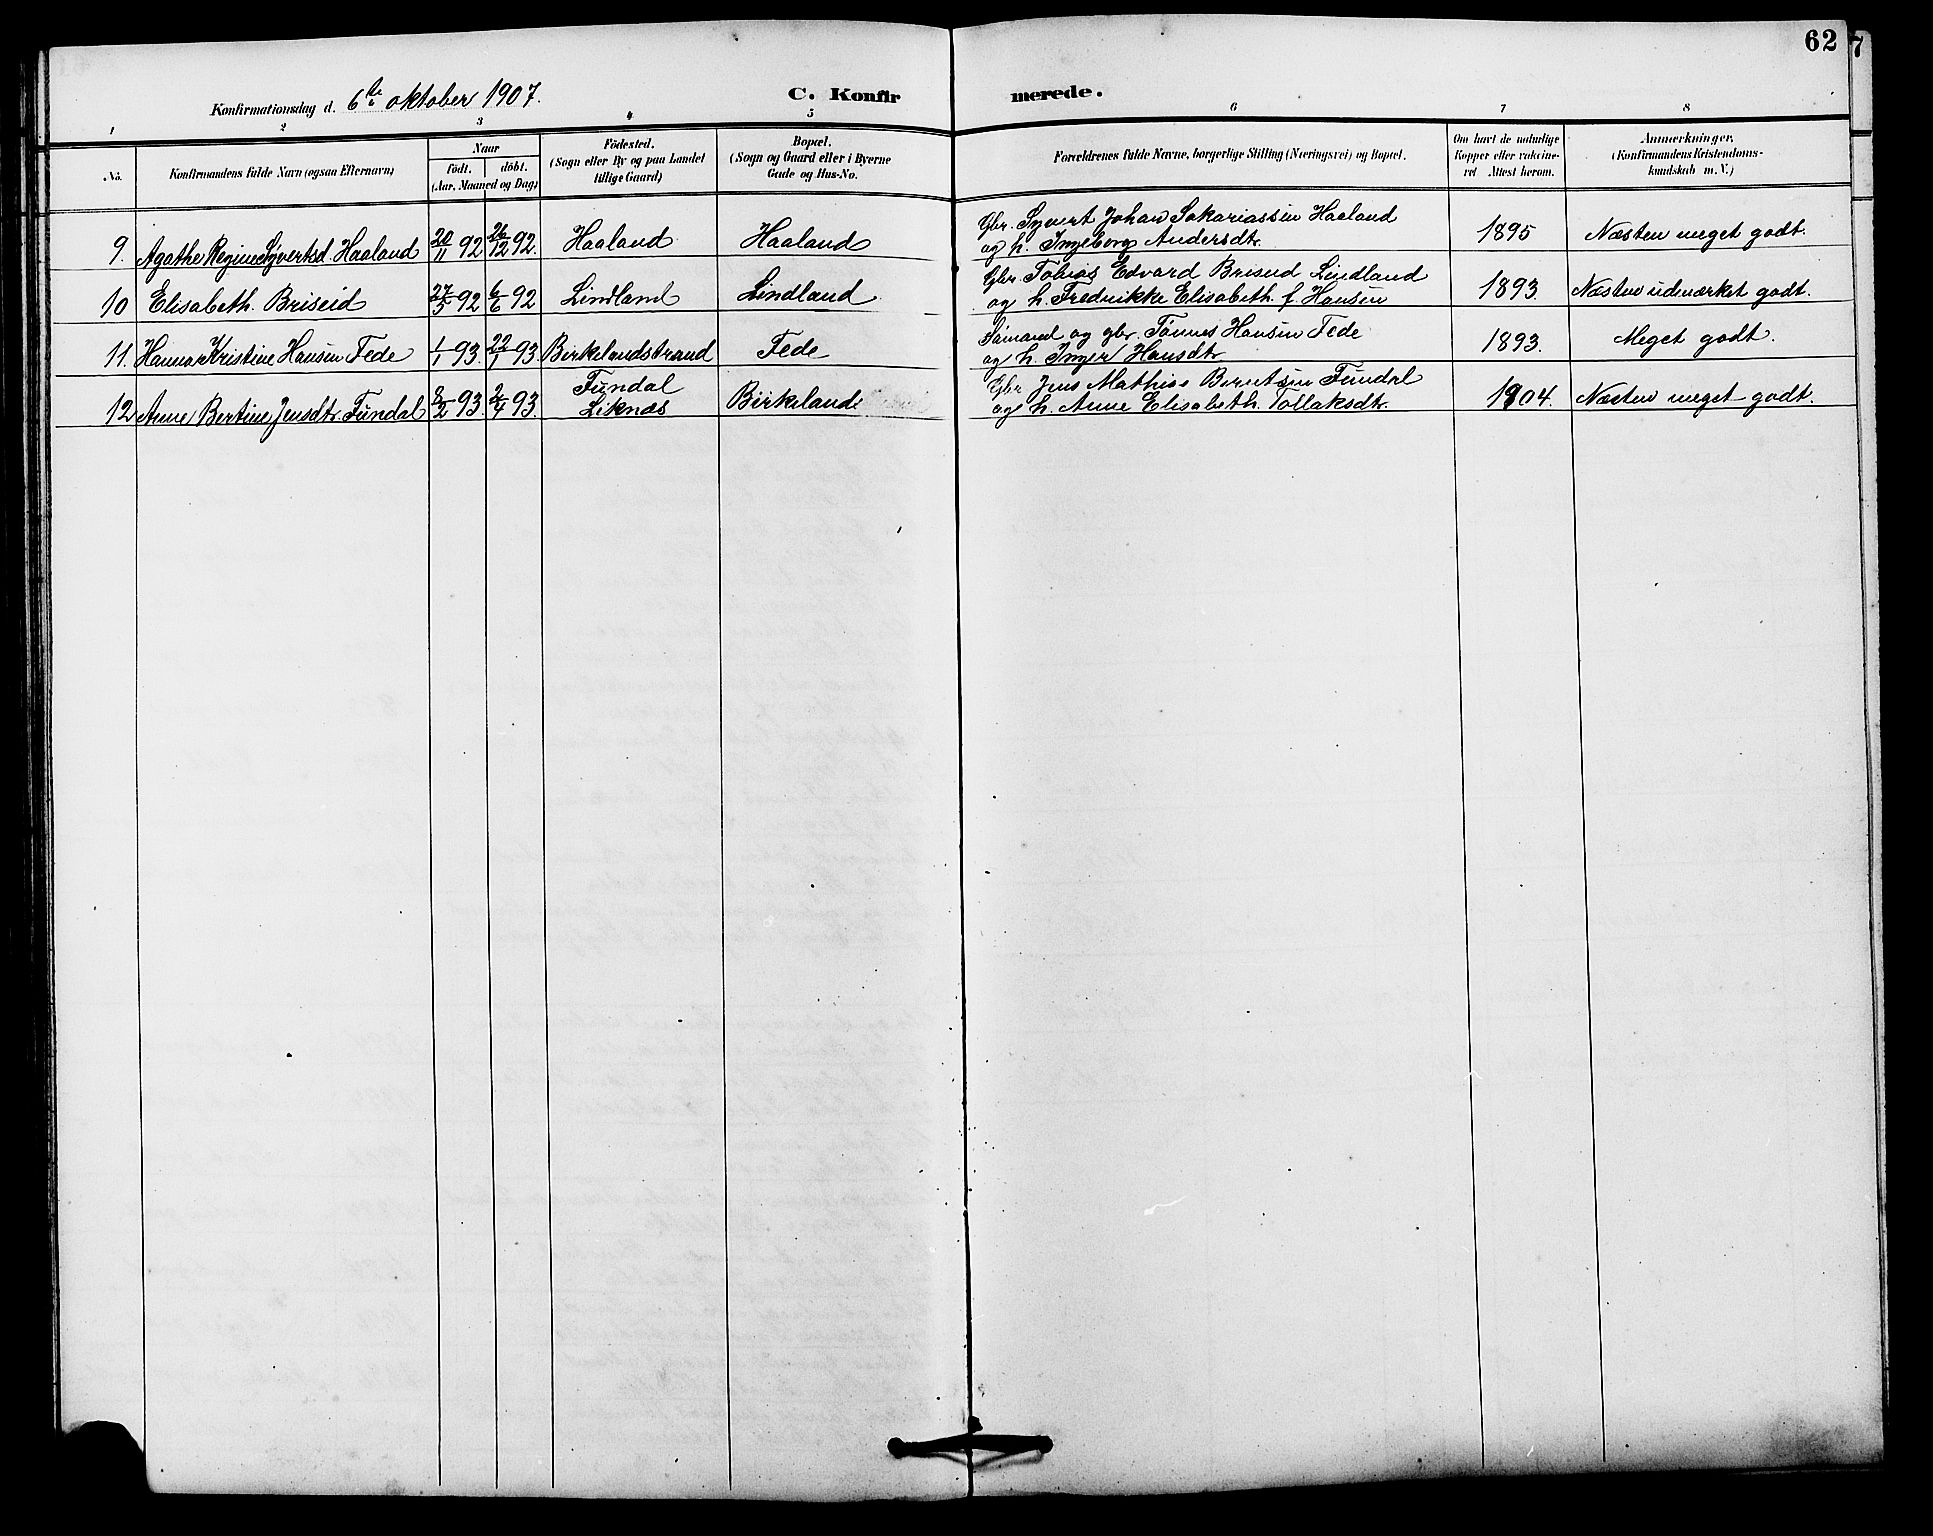 62
7
Konfirmationsdag d. 6te oktober 1907.
C. Konfirmerede.
1 2 3 4 5 6 7 8
No.
Konfirmandens fulde Navn (ogsaa Efternavn)
Naar
født. døbt.
(Aar, Maaned og Dag)
Fødested.
(Sogn eller By og paa Landet
tillige Gaard)
Bopæl.
(Sogn og Gaard eller i Byerne
Gade og Hus-No.
Forældrenes fulde Navne, borgerlige Stilling (Næringsvei) og Bopæl.
Om havt de naturlige
Kopper eller vaccine-
ret Attest herom.
Anmerkninger,
(Konfirmandens Kristendoms-
kundskab m. V.)
9. Agathe Regine Syvertsd. Haaland 20/11 92 26/12 92. Haaland Haaland Gbr. Syvert Johan Sakariassen Haaland
og h. Ingeborg Andersdtr. 1895 Næsten meget godt.
10 Elisabeth Briseid 27/5 92 6/6 92 Lindland Lindland. Gbr. Tobias Edvard Briseid Lindland
og h. Fredrikke Elisabeth f. Hansen 1893. Næsten udmærket godt.
11. Hanna Kristine Hansen Fede 1/1 93 22/1 93 Birkelandstrand Fede Sømand og gbr. Tønnes Hansen Fede
og h. Inger Hansdtr 1893. Meget godt.
12 Anne Bertine Jensdtr. Fundal 8/2 93 2/4 93. Fundal
Liknæs Birkeland Gbr Jens Mathias Berntsen Fundal
og h. Anne Elisabeth Tollaksdtr. 1904. Næsten meget godt.